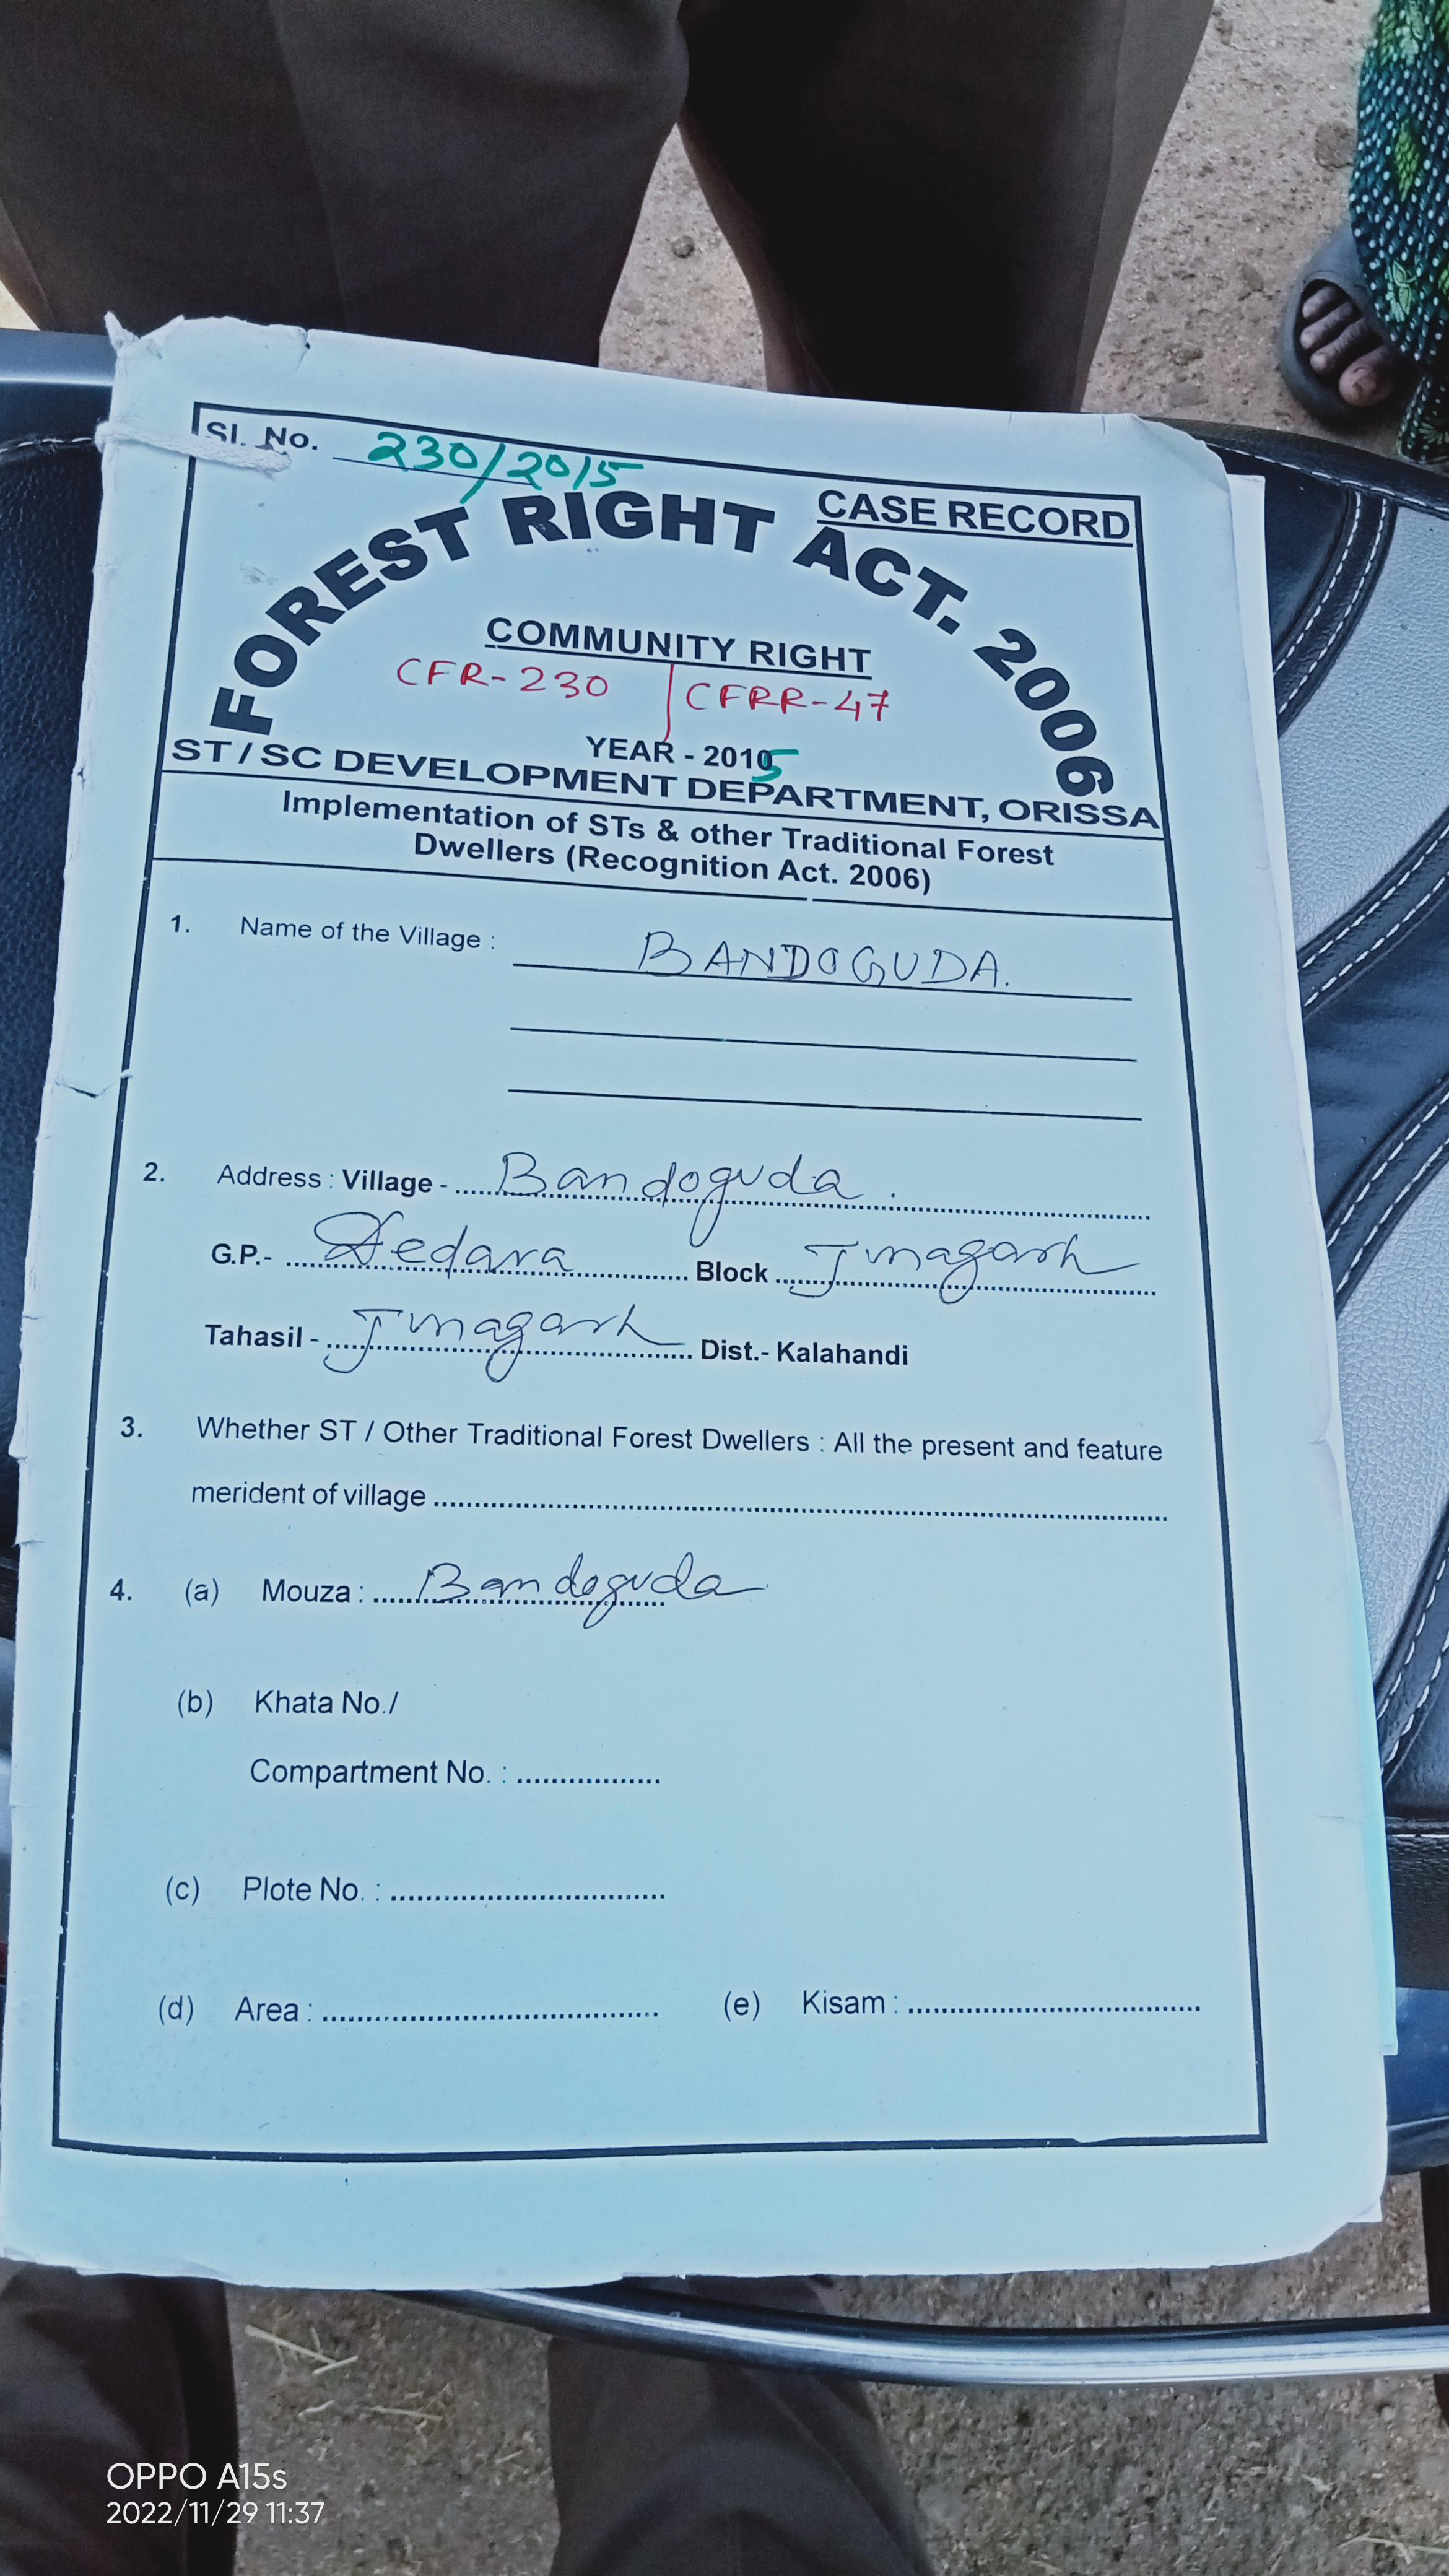 Sl. No. 230/2015
CASE RECORD
FOREST RIGHT ACT. 2006
COMMUNITY RIGHT
CFR-230 | CFRR-47
YEAR - 2015
ST / SC DEVELOPMENT DEPARTMENT, ORISSA
Implementation of STs & other Traditional Forest
Dwellers (Recognition Act. 2006)
1. Name of the Village : BANDOGUDA.
2. Address : Village - Bandoguda.
G.P.- Dedara Block Jnagarh
Tahasil - Jnagarh Dist.- Kalahandi
3. Whether ST / Other Traditional Forest Dwellers : All the present and feature
merident of village
4. (a) Mouza : Bandoguda
(b) Khata No./
Compartment No. :
(c) Plote No. :
(d) Area : (e) Kisam :
OPPO A15s
2022/11/29 11:37